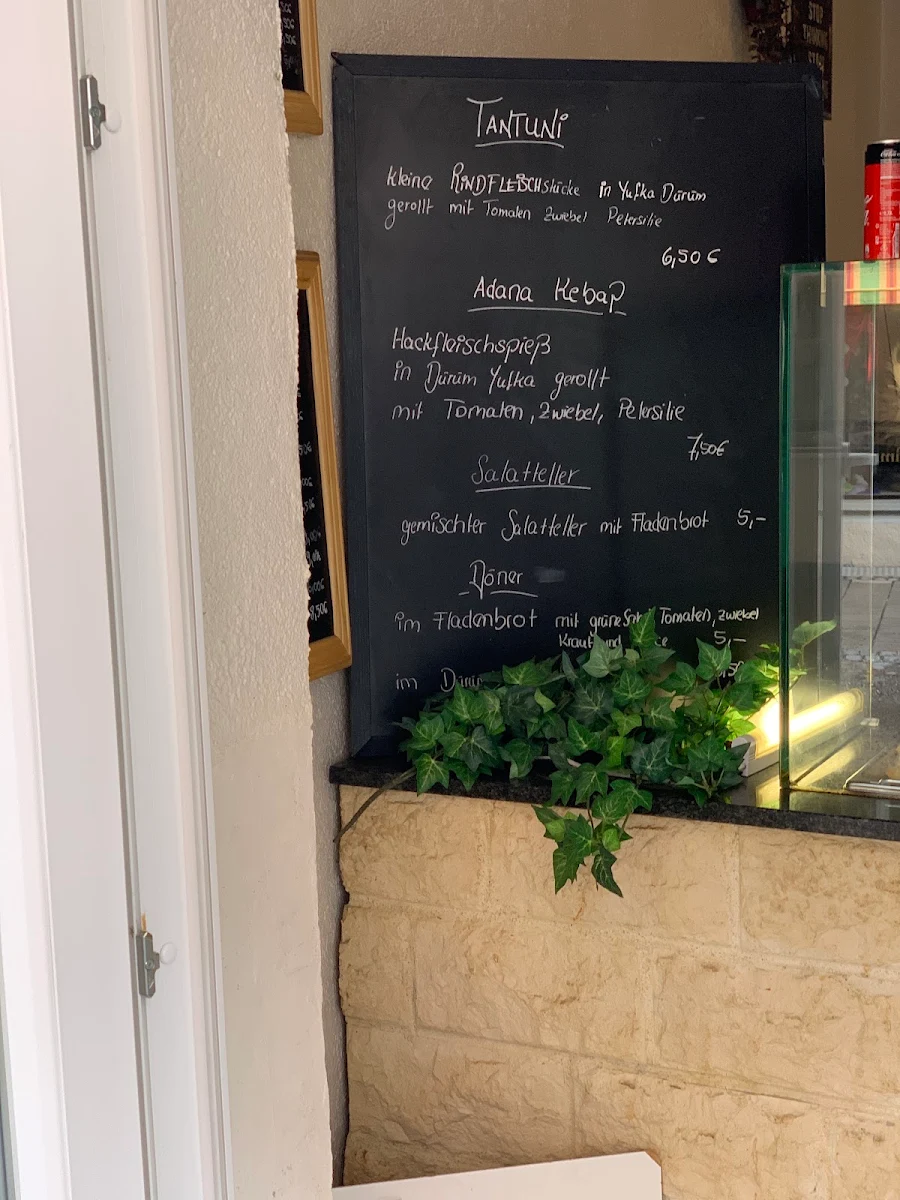 TANTUNI
kleine RINDFLEISCHstücke in Yufka Dürüm
gerollt mit Tomaten Zwiebel Petersilie
6,50€
Adana Kebap
Hackfleischspieß
in Dürüm Yufka gerollt
mit Tomaten, Zwiebel, Petersilie
7,50€
Salatteller
gemischter Salatteller mit Fladenbrot 5,-
Döner
im Fladenbrot mit grüne Tomaten, zwiebel
Kraut und 5,-
im Dürüm
8,50€
STOP